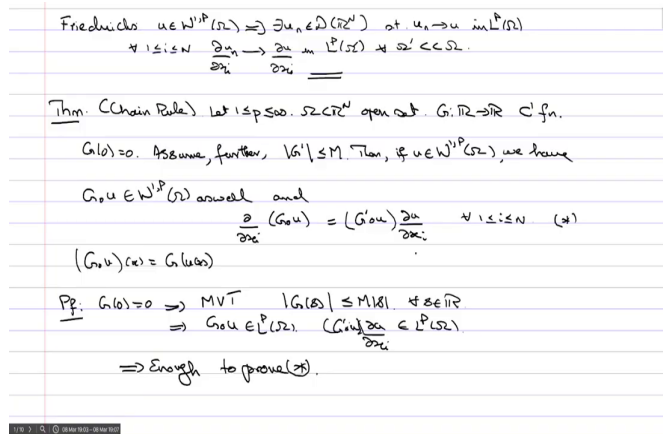 Friedrichs u ∈ W^{1,p}(Ω) ⇒ ∃ u_n ∈ D(ℝ^N) st. u_n → u in L^p(Ω)
∀ 1 ≤ i ≤ N ∂u_n/∂x_i → ∂u/∂x_i in L^p(Ω') ∀ Ω' ⊂⊂ Ω.
Thm. (Chain Rule) Let 1 ≤ p ≤ ∞. Ω ⊂ ℝ^N open set. G: ℝ → ℝ C' fn.
G(0) = 0. Assume, further, |G'| ≤ M. Then, if u ∈ W^{1,p}(Ω), we have
G∘u ∈ W^{1,p}(Ω) as well and
∂/∂x_i (G∘u) = (G'∘u) ∂u/∂x_i ∀ 1 ≤ i ≤ N (*)
(G∘u)(x) = G(u(x))
Pf: G(0) = 0 ⇒ MVT |G(s)| ≤ M|s|. ∀ s ∈ ℝ
⇒ G∘u ∈ L^p(Ω). (G'∘u) ∂u/∂x_i ∈ L^p(Ω)
⇒ Enough to prove (*).